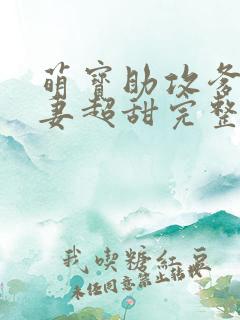 萌寶助攻爹
妻超甜完整
我喫糖紅豆
未经同意禁止转载